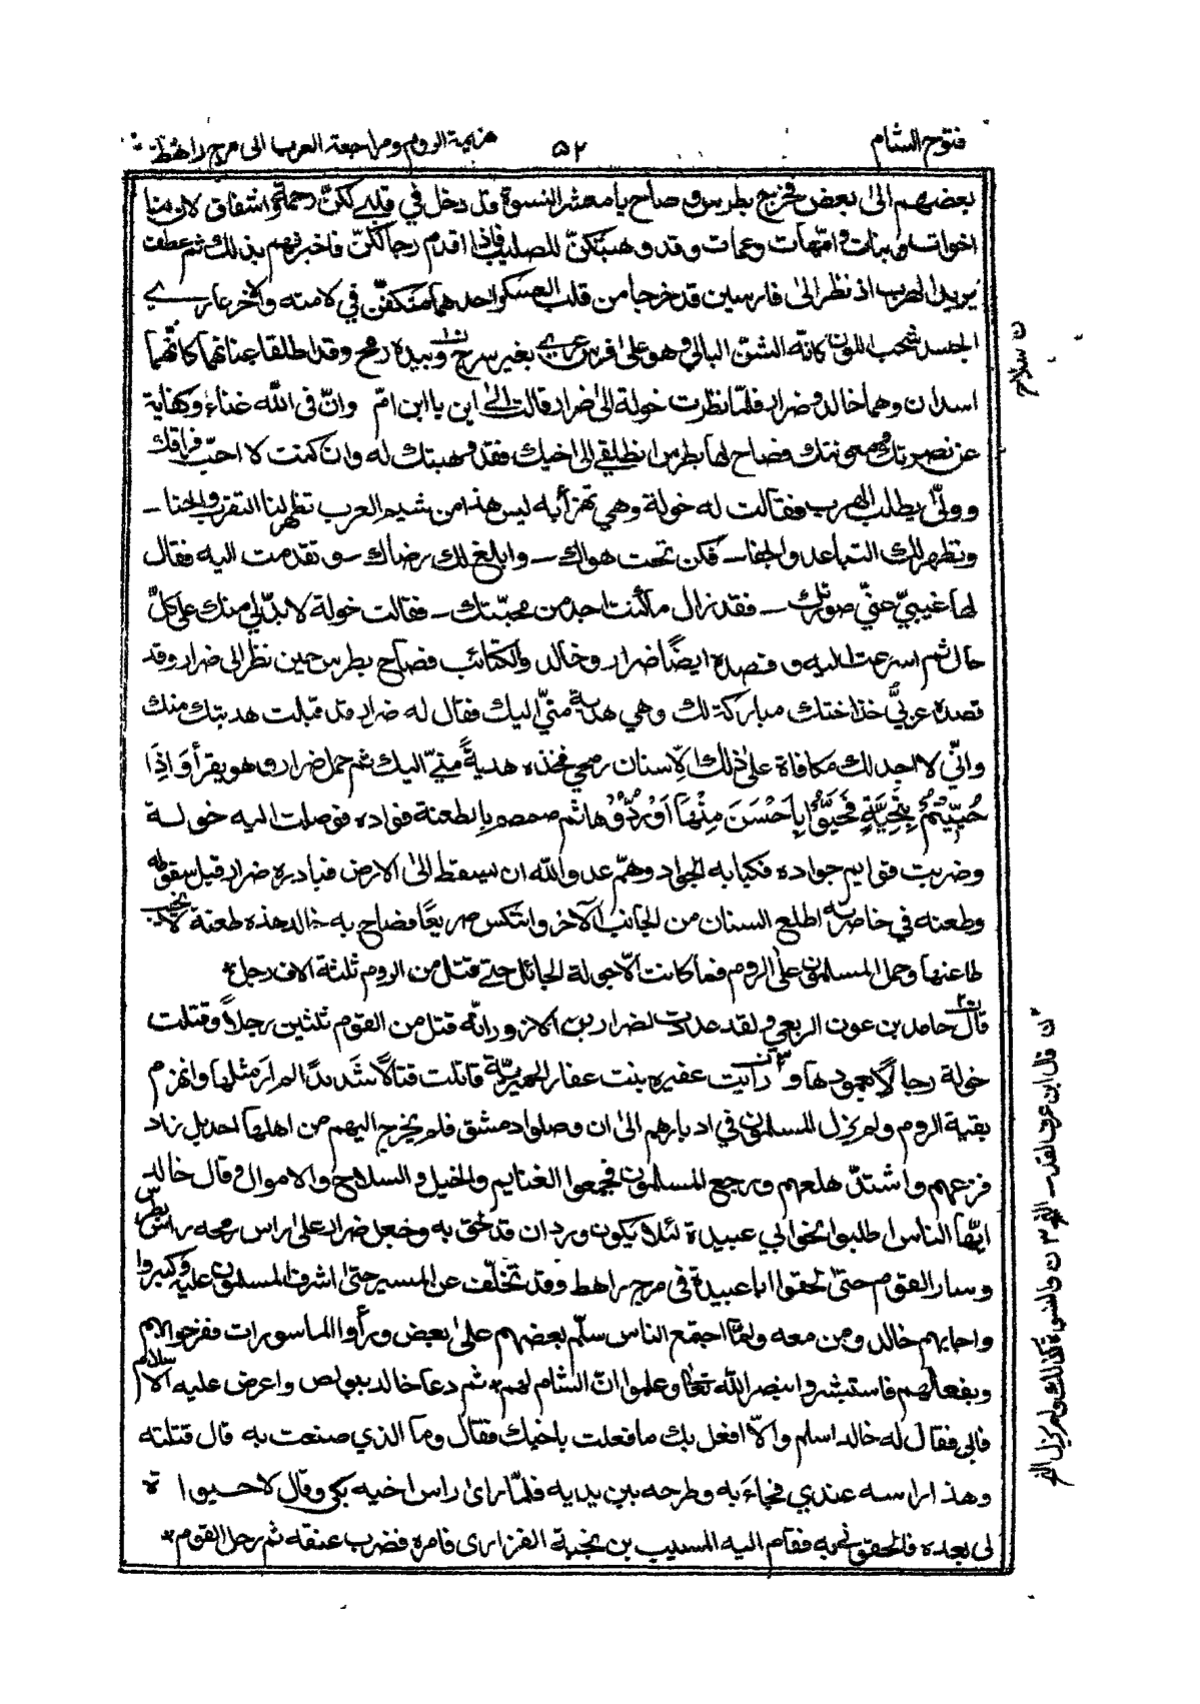 فتوح الشام
٥٢
هزيمة الروم ومراجعة العرب الى مرج راهط
بعضهم الى بعض فخرج بطرس و صاح يا معشر النسوة قد دخل في قلبي لكنّ رحمة و اشفاق لان منا
اخوات و بنات و امّهات وعمات و قد وهبتكنّ للصليب فاذا اقدم رجالكنّ فاخبرنهم بذلك ثم عطف
يريد الهرب اذ نظر الى فارسين قد خرجا من قلب العسكر احدهما متكفّن في لامته والآخر عارى
الجسد شحب اللون كانه الشق البالي وهو على فرس عرى بغير سرج وبيده رمح وقد اطلقا عنانهما كانّهما
اسدان وهما خالد و ضرار فلمّا نظرت خولة الى ضرار قالت الى اين يا ابن امّ وانّ فى الله غناء وكفاية
عن نصرتك ومعونتك فصاح لها بطرس انطلقي الى اخيك فقد وهبتك له وان كنت لا احبّ فراقك
وولّى يطلب الهرب فقالت له خولة وهي تهزأ به ليس هذا من شيم العرب تظهر لنا التقرب والحنا ـ
وتظهر لك التباعد والجفا ـ فكن تحت هواك ـ وابلغ لك رضاك ـ وتقدمت اليه فقال
لها غيبيّ عنيّ صورتك ـ فقد زال ما كنت اجد من محبّتك ـ فقالت خولة لا بدّ لي منك على كلّ
حال ثم اسرعت اليه و قصده ايضًا ضرار وخالد والكتائب فصاح بطرس حين نظر الى ضرار وقد
قصده عربيّ خذ اختك مباركة لك وهي هدية منّي اليك فقال له ضرار قد قبلت هديتك منك
وانّي لا اجد لك مكافاة على ذلك الّا سنان رمحي فخذه هديةً منيّ اليك ثم حمل ضرار وهو يقرأ وَاِذَا
حُيِّيْتُمْ بِتَحِيَّةٍ فَحَيُّوْا بِاَحْسَنَ مِنْهَا اَوْ رُدُّوْهَا ثم صمصم بالطعنة فواده فوصلت اليه خولة
وضربت قوايم جواده فكبا به الجواد وهمّ عدو الله ان يسقط الى الارض فبادره ضرار قبل سقوطه
وطعنه في خاصرته اطلع السنان من الجانب الآخر وانتكس صريعًا فصاح به خالد هذه طعنة لا يخيب
طاعنها وحمل المسلمون على الروم فما كانت الّا جولة الجائل حتى قتل من الروم ثلثة الاف رجل *
قال حامد بن عون الربعي ولقد عددت لضرار بن الازور انّه قتل من القوم ثلثين رجلاً وقتلت
خولة رجالًا بعمودها و رأيت عفيره بنت عفار الحميريّة قاتلت قتالًا شديدًا لم ار مثلها وانهزم
بقية الروم ولم يزل المسلمون في ادبارهم الى ان وصلوا دمشق فلم يخرج اليهم من اهلها احد بل زاد
فزعهم واشتدّ هلعهم ورجع المسلمون فجمعوا الغنايم والخيل و السلاح والاموال وقال خالد
ايّها الناس اطلبوا الحق ابي عبيدة لئلا يكون وردان قد لحق به وجعل ضرار على راس رمحه راس بطرس
وسار القوم حتى لحقوا ابا عبيدة فى مرج راهط وقد تخلّف عن المسير حتى اشرف المسلمون عليه وكبروا
واجابهم خالد ومن معه ولمّا اجتمع الناس سلّم بعضهم على بعض ورأوا الماسورات ففرحوا بهم
وبفعالهم فاستبشروا بنصر الله تعالى وعلموا انّ الشام لهم * ثم دعا خالد ببولص واعرض عليه الاسلام
فابى فقال له خالد اسلم والّا افعل بك ما فعلت باخيك فقال وما الذي صنعت به قال قتلته
وهذا راسه عندي فجاء به وطرحه بين يديه فلمّا رأى راس اخيه بكى وقال لا حيوة
لى بعده فالحقوني به فقام اليه المسيب بن نجبة الفزارى فامره فضرب عنقه ثم رحل القوم *
ن سلام
ن قال ابن عوف لقد ـ الخ ٣ ن والنسوة كذلك ولم يزل الخ